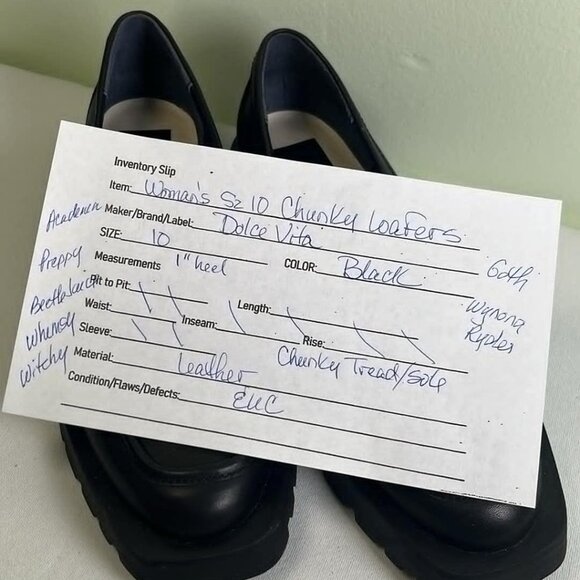 Inventory Slip
Item: Woman's Sz 10 Chunky Loafers
Maker/Brand/Label: Dolce Vita
SIZE: 10 COLOR: Black
Measurements 1" heel
Pit to Pit: Length:
Waist: Inseam: Rise:
Sleeve: Chunky Tread/Sole
Material: Leather
Condition/Flaws/Defects: EUC
Preppy
Whimsy
Witchy
Goth
Wynona
Ryder